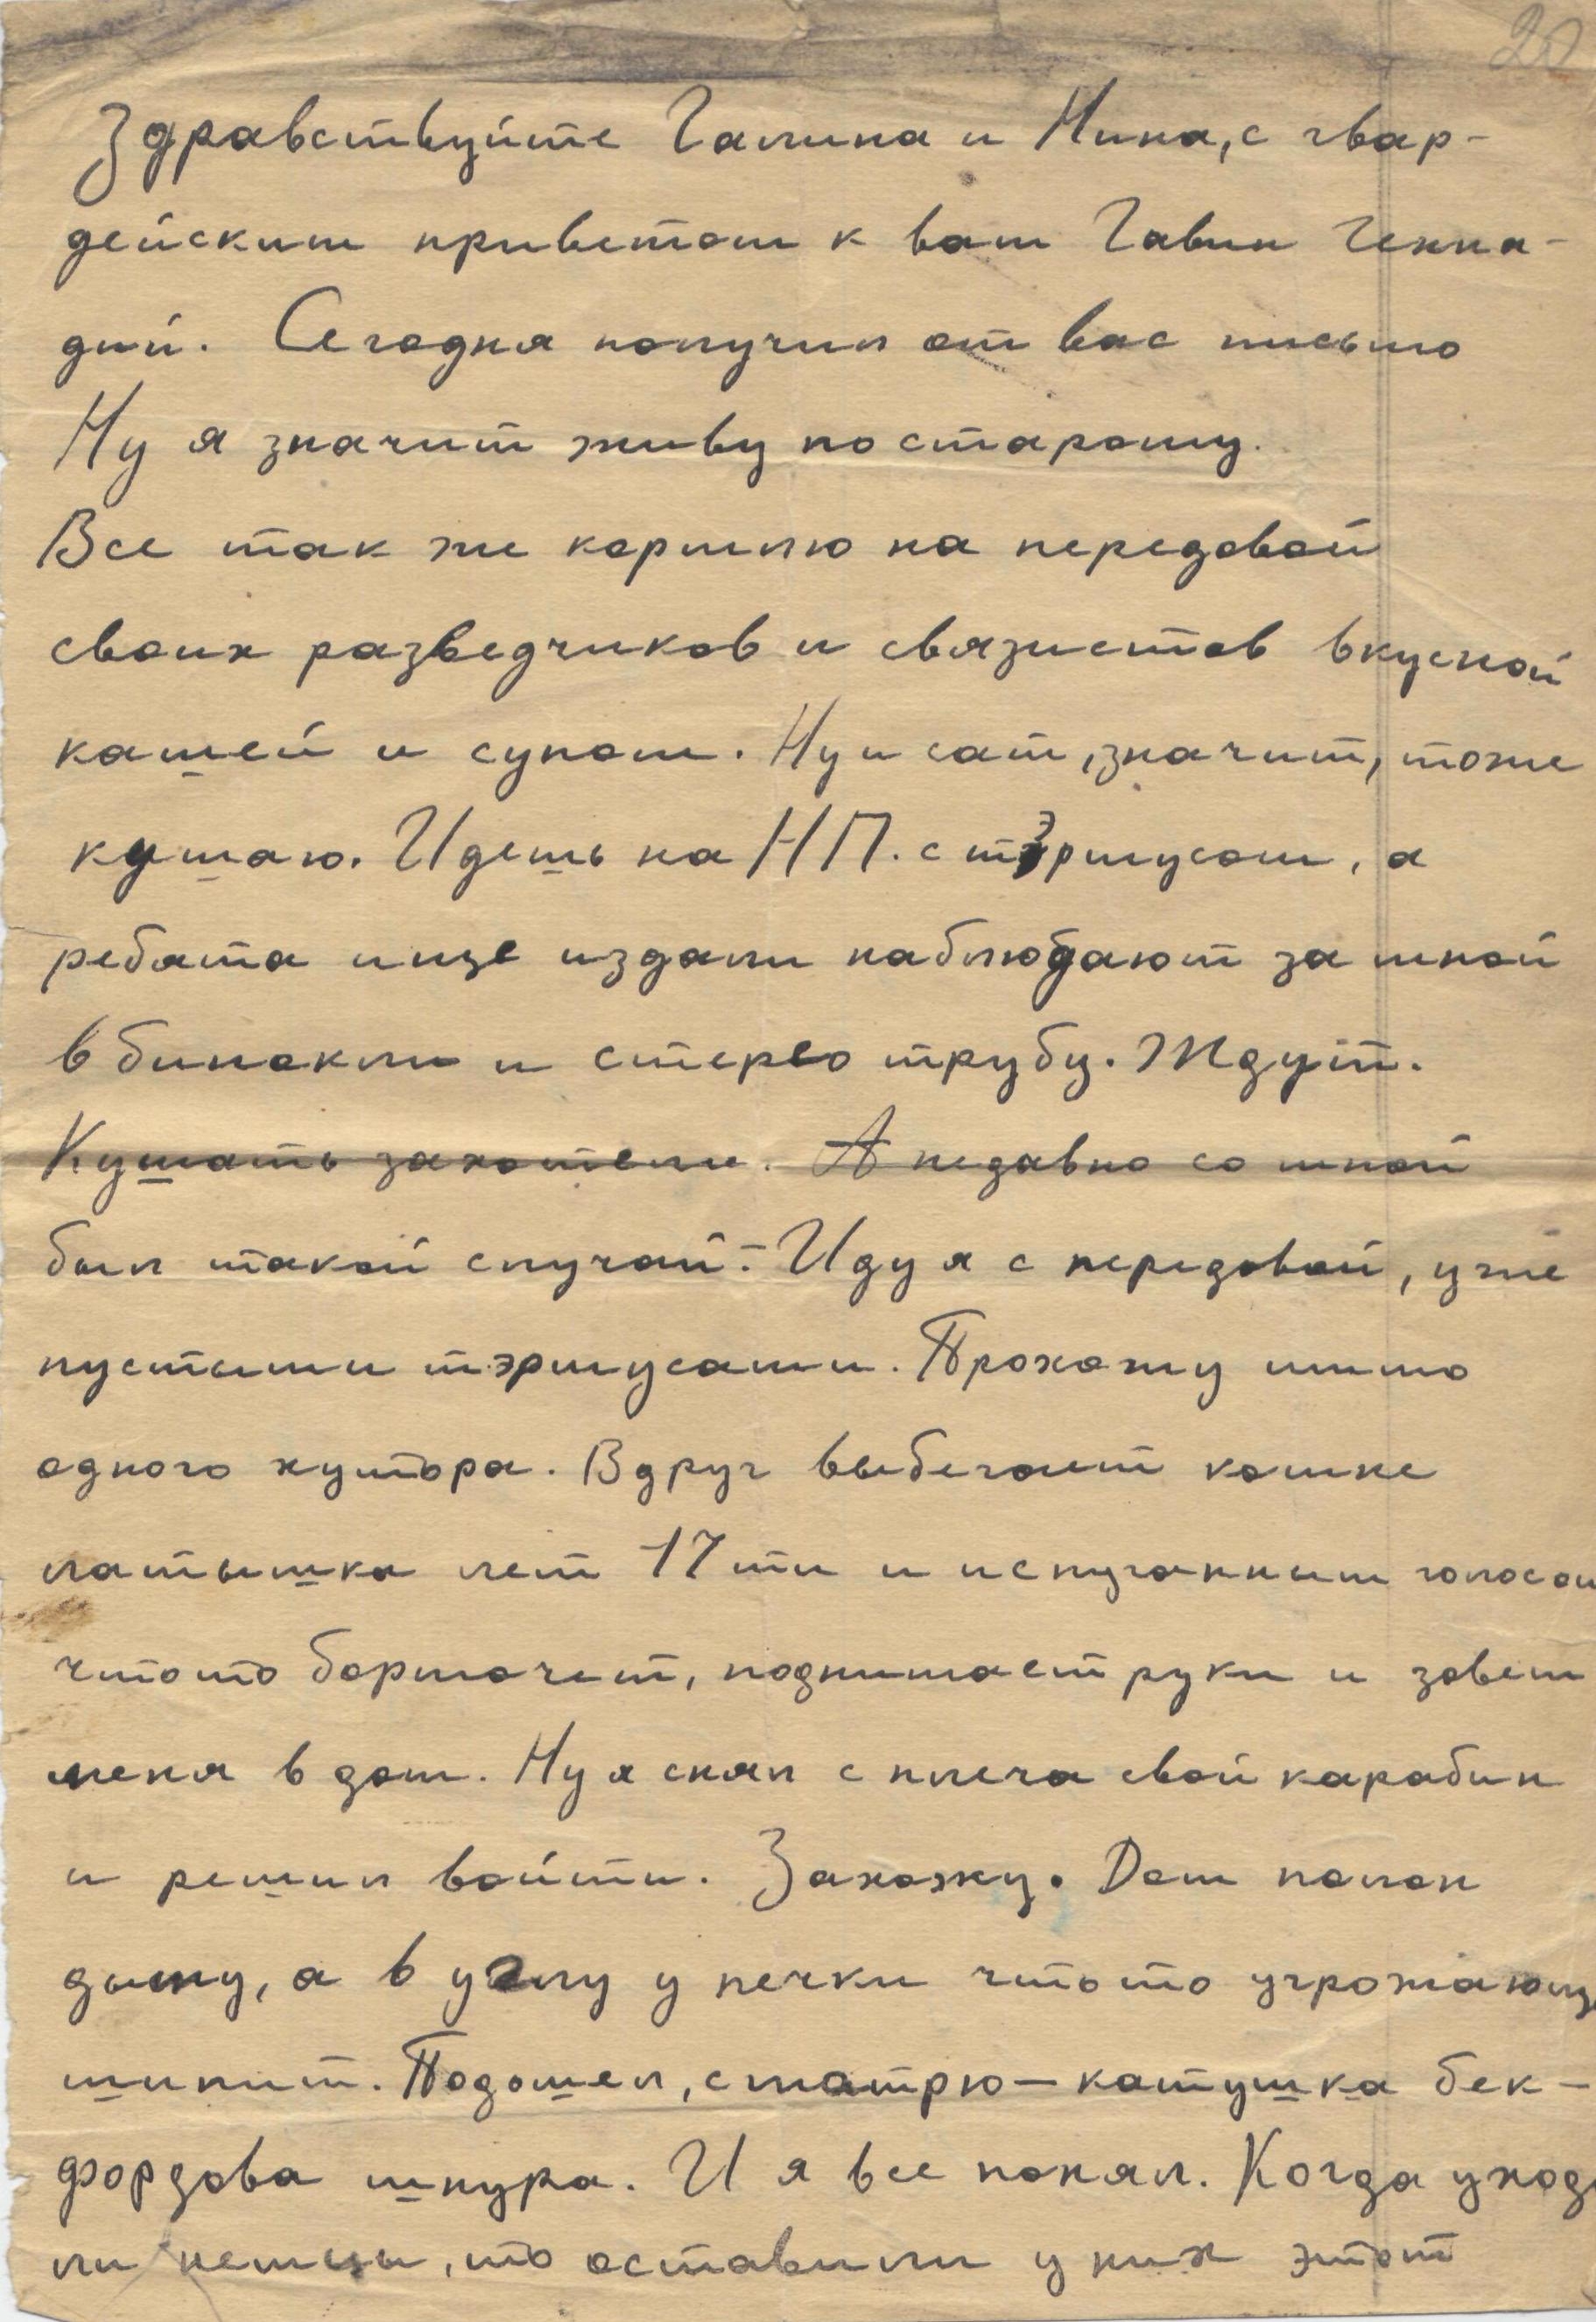 20
Здравствуйте Галина и Нина, с гвар-
дейским приветом к вам Гавин Генна-
дий. Сегодня получил от вас письмо
Ну я значит живу по старому.
Все так же кормлю на передовой
своих разведчиков и связистов вкусной
кашей и супом. Ну и сам, значит, тоже
кушаю. Идешь на НП. с тэрмусом, а
ребята ище издали наблюдают за мной
в бинокли и стерео трубу. Ждут.
Кушать захотели. А недавно со мной
был такой случай:- Иду я с передовой, уже
пустыми тэрмусами. Прохожу мимо
одного хутора. Вдруг выбегает ко мне
латышка лет 17 ти и испуганным голосом
что то бормочет, поднимает руки и зовет
меня в дом. Ну я снял с плеча свой карабин
и решил войти. Захожу. Дом полон
дыму, а в углу у печки что то угрожающ
шипит. Подошел, смотрю - катушка бек-
фордова шнура. И я все понял. Когда уходи
ли немцы, то оставили у них этот